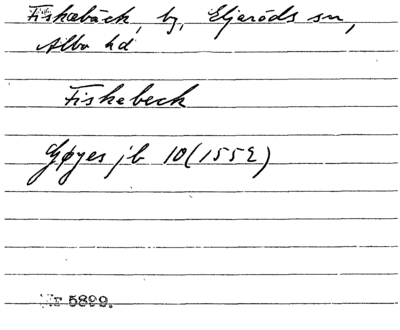 Fiskebäck, by, Eljaröds sn,
Albo hd
Fiskebeck
Gøyes jb 10 (1552)
Nr 5899.